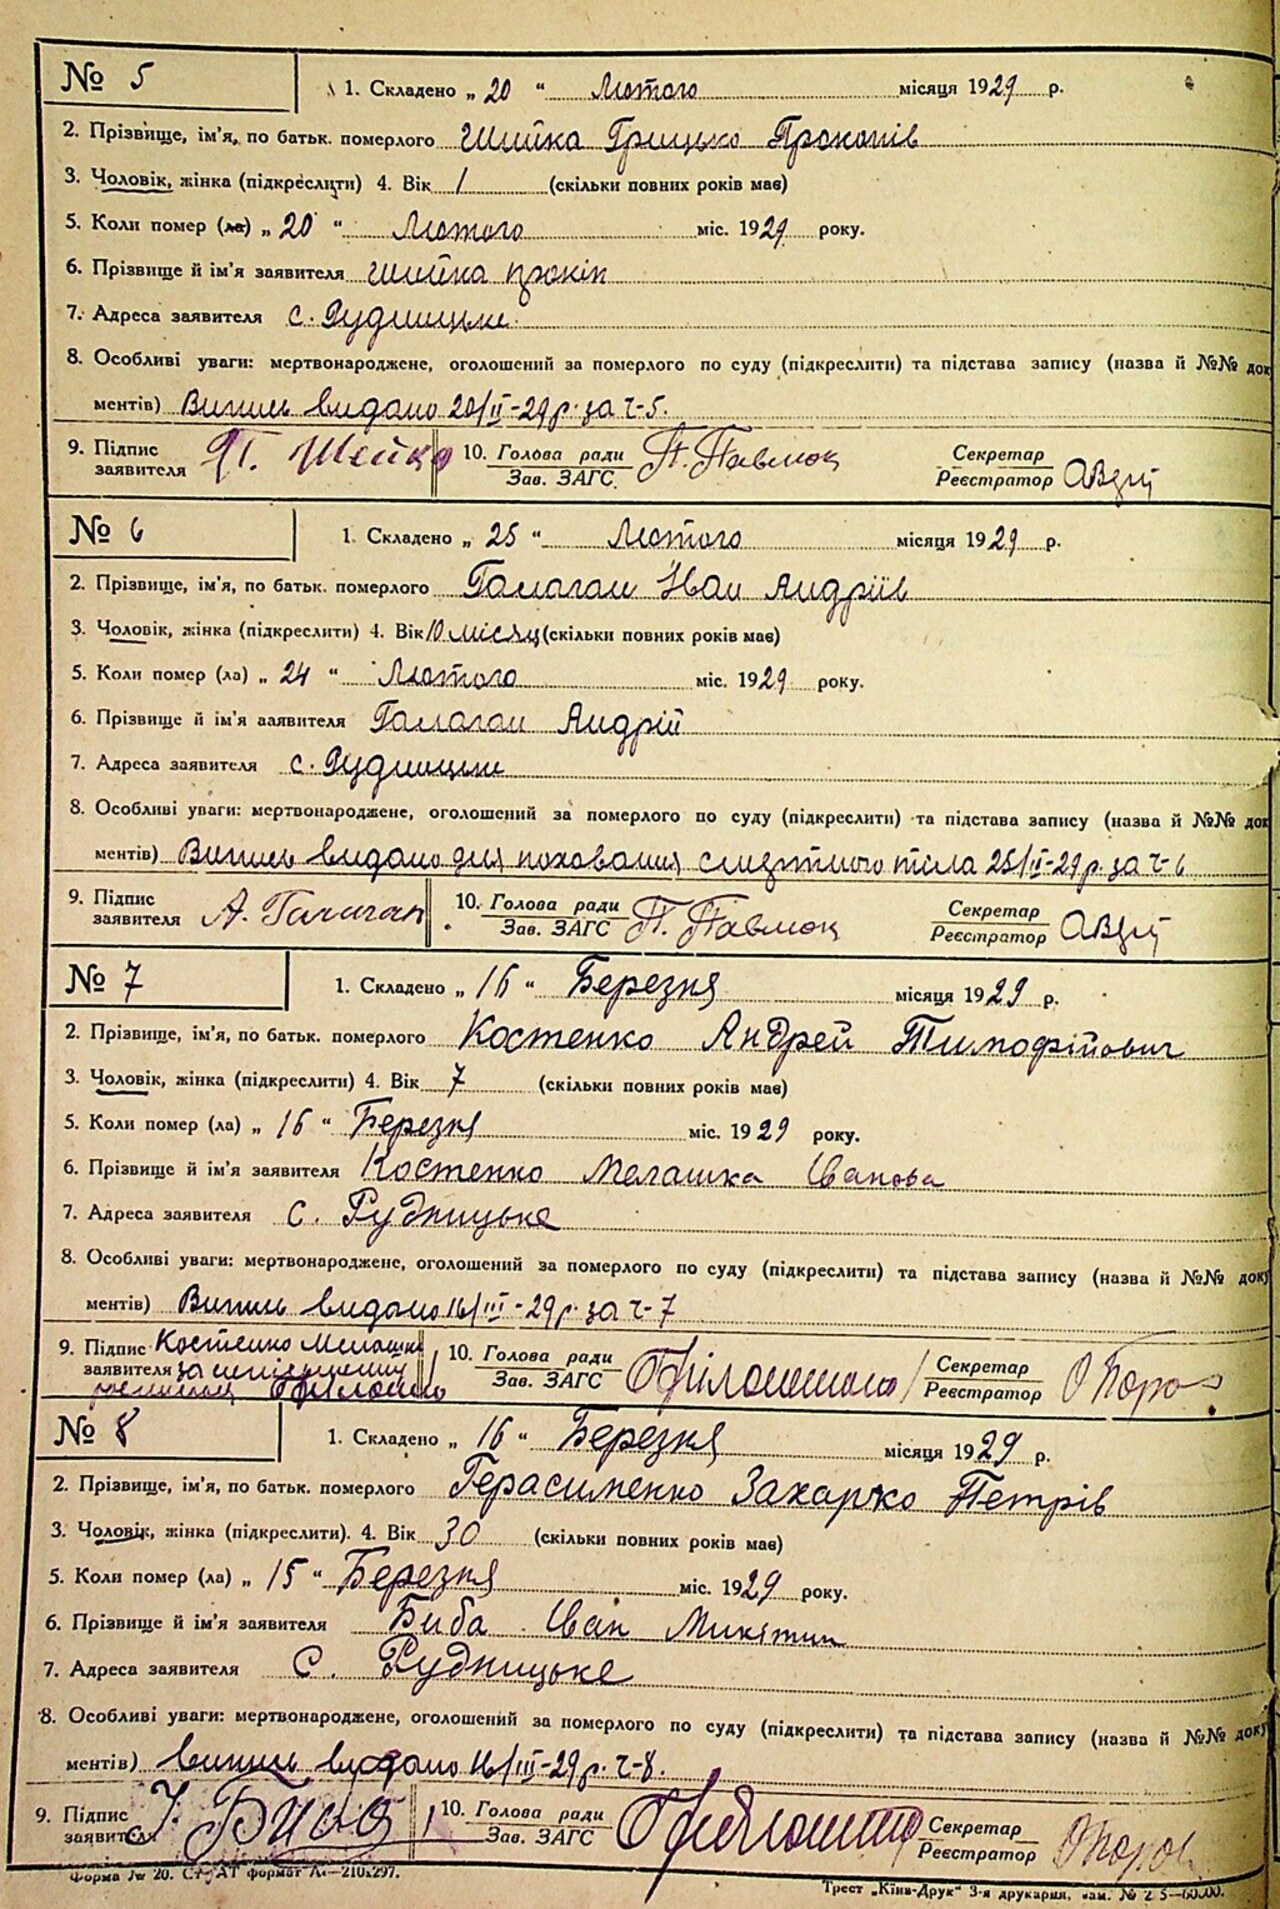 № 5 1. Складено „ 20 “ Лютого місяця 1929 р.
2. Прізвище, ім'я, по батьк. померлого Шийка Грицько Прокопів
3. Чоловік, жінка (підкреслити) 4. Вік 1 (скільки повних років має)
5. Коли помер (ла) „ 20 “ Лютого міс. 1929 року.
6. Прізвище й ім'я заявителя Шийка Прокіп
7. Адреса заявителя с. Рудницьке
8. Особливі уваги: мертвонароджене, оголошений за померлого по суду (підкреслити) та підстава запису (назва й №№ доку
ментів) Випись видано 20/II-29 р. за ч-5.
9. Підпис заявителя П. Шейко 10. Голова ради Зав. ЗАГС П. Павлюк Секретар Реєстратор
№ 6 1. Складено „ 25 “ Лютого місяця 1929 р.
2. Прізвище, ім'я, по батьк. померлого Галаган Іван Андріїв
3. Чоловік, жінка (підкреслити) 4. Вік 10 місяц (скільки повних років має)
5. Коли помер (ла) „ 24 “ Лютого міс. 1929 року.
6. Прізвище й ім'я заявителя Галаган Андрій
7. Адреса заявителя с. Рудницьке
8. Особливі уваги: мертвонароджене, оголошений за померлого по суду (підкреслити) та підстава запису (назва й №№ доку
ментів) Випись видано для поховання смертного тіла 25/II-29 р. за ч-6
9. Підпис заявителя А. Галаган 10. Голова ради Зав. ЗАГС П. Павлюк Секретар Реєстратор
№ 7 1. Складено „ 16 “ Березня місяця 1929 р.
2. Прізвище, ім'я, по батьк. померлого Костенко Андрей Тимофійович
3. Чоловік, жінка (підкреслити) 4. Вік 7 (скільки повних років має)
5. Коли помер (ла) „ 16 “ Березня міс. 1929 року.
6. Прізвище й ім'я заявителя Костенко Мелашка Іванова
7. Адреса заявителя с. Рудницьке
8. Особливі уваги: мертвонароджене, оголошений за померлого по суду (підкреслити) та підстава запису (назва й №№ доку
ментів) Випись видано 16/III-29 р. за ч-7
9. Підпис заявителя Костенко Мелашка за 10. Голова ради Зав. ЗАГС Секретар Реєстратор
№ 8 1. Складено „ 16 “ Березня місяця 1929 р.
2. Прізвище, ім'я, по батьк. померлого Герасименко Захарко Петрів
3. Чоловік, жінка (підкреслити). 4. Вік 30 (скільки повних років має)
5. Коли помер (ла) „ 15 “ Березня міс. 1929 року.
6. Прізвище й ім'я заявителя Биба Іван Микитин
7. Адреса заявителя с. Рудницьке
8. Особливі уваги: мертвонароджене, оголошений за померлого по суду (підкреслити) та підстава запису (назва й №№ доку
ментів) Випись видано 16/III-29 р. ч-8.
9. Підпис заявителя І. Биба 10. Голова ради Зав. ЗАГС Секретар Реєстратор
Форма № 20. формат А4—210x297.
Трест „Київ-Друк“ 3-я друкарня,